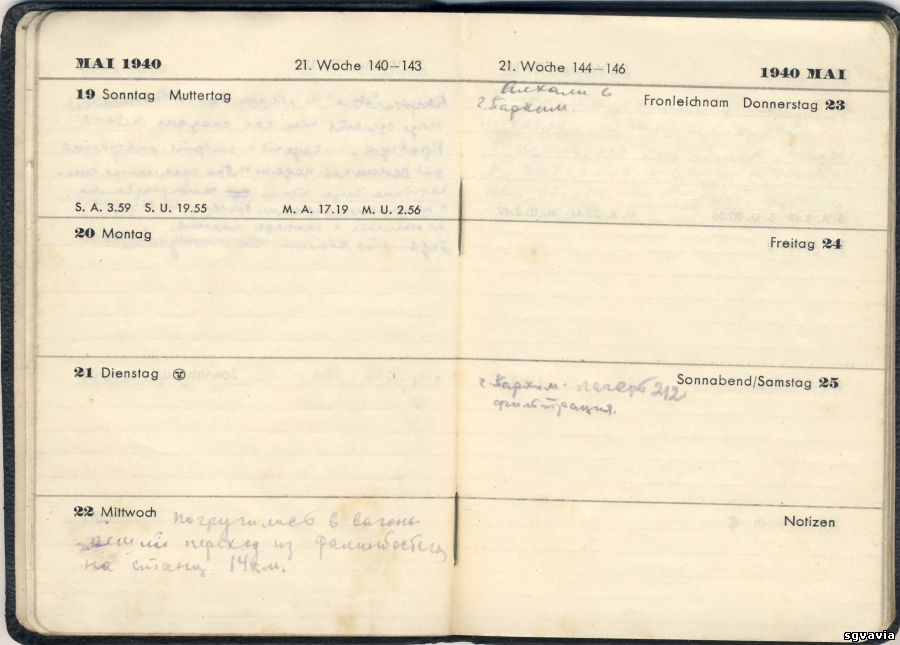 MAI 1940
21. Woche 140–143
19 Sonntag Muttertag
S. A. 3.59 S. U. 19.55 M. A. 17.19 M. U. 2.56
20 Montag
21 Dienstag
22 Mittwoch Погрузились в вагоны
пешой переход из Фалинбостель
на станц 14 км.
21. Woche 144–146
1940 MAI
Fronleichnam Donnerstag 23
г. Пархим
Freitag 24
Sonnabend/Samstag 25
г. Пархим. лагерь 212
фильтрация.
Notizen
sgvavia